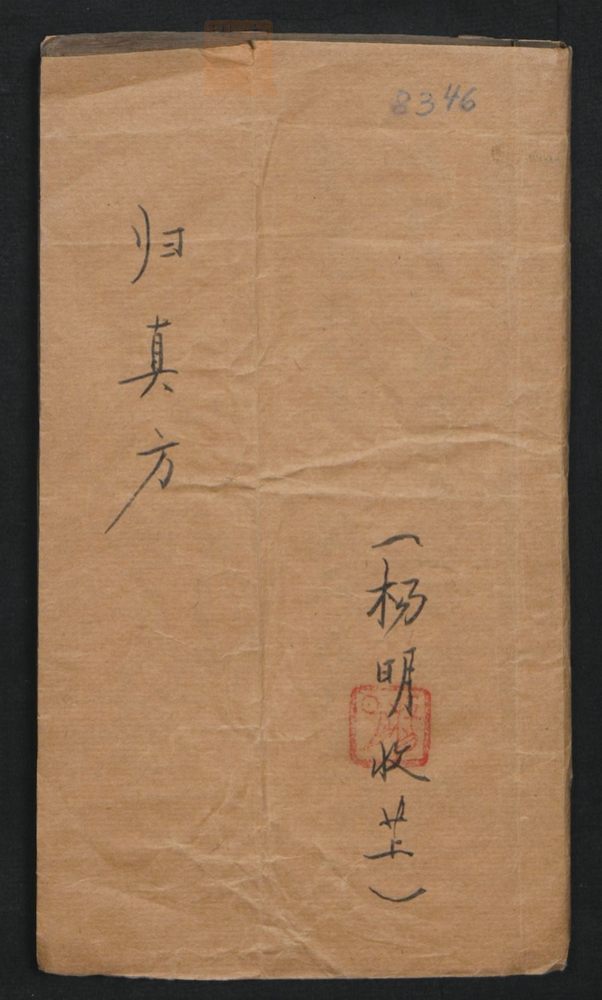 8346
归真方
(杨明收䒙)